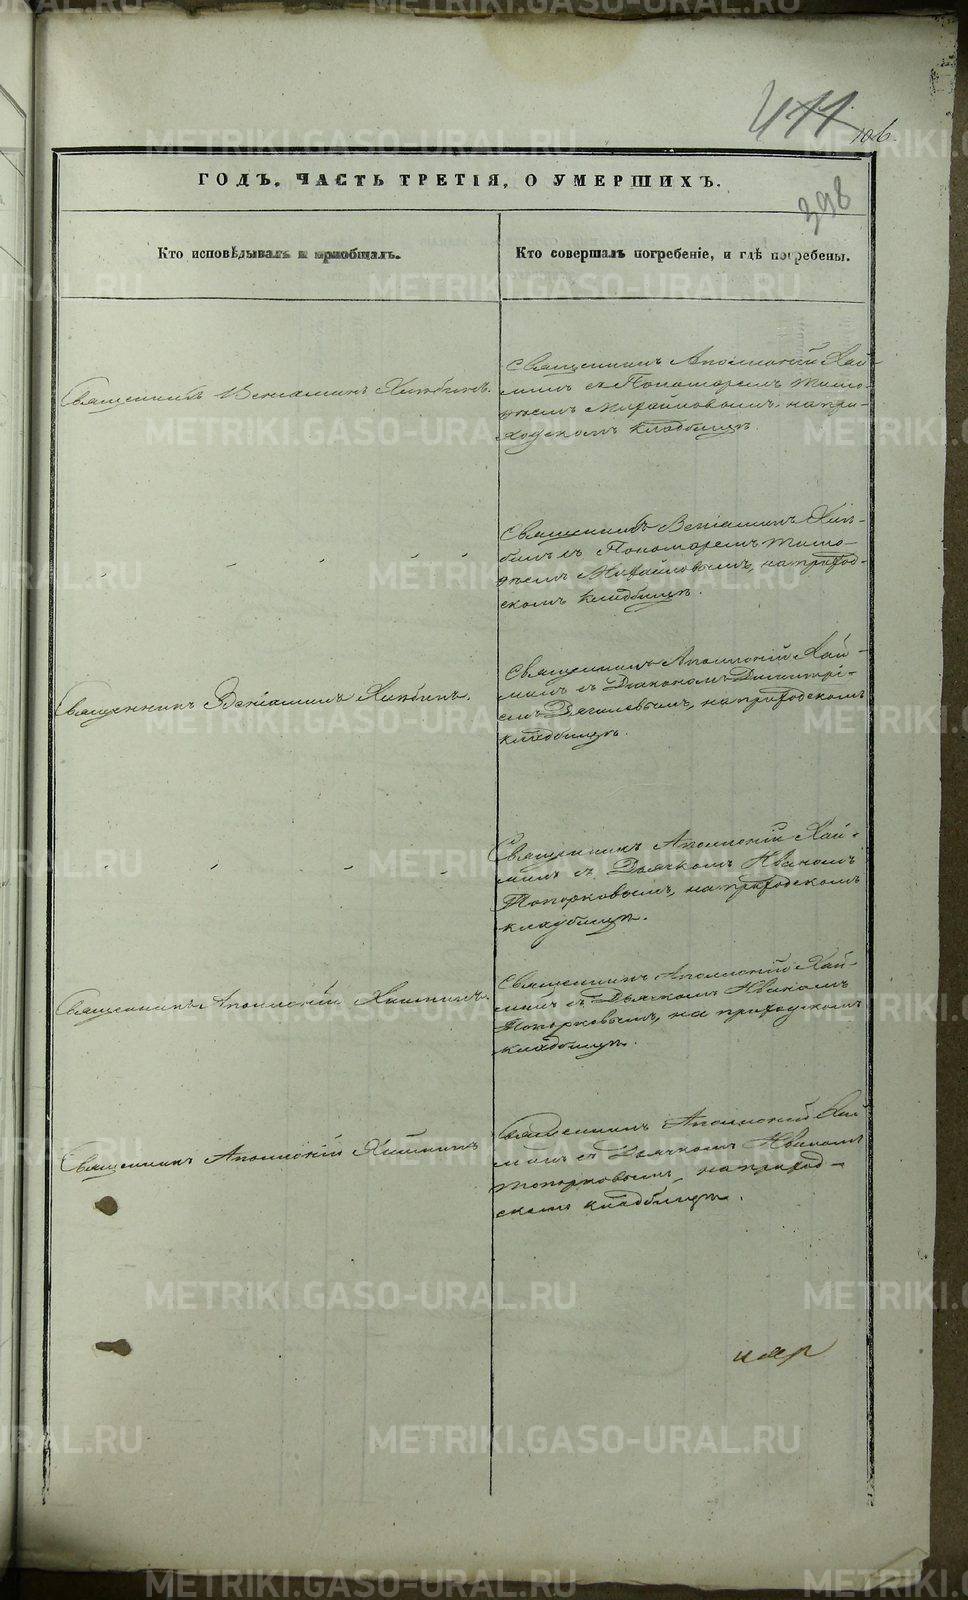 411
106.
ГОДЪ. ЧАСТЬ ТРЕТІЯ, О УМЕРШИХЪ.
398
Кто исповѣдывалъ и приобщалъ.
Кто совершалъ погребеніе, и гдѣ погребены.
Священникъ Веніаминъ
Священникъ Аполлоній Хай-
минъ съ Пономаремъ Тимо-
ѳеемъ Михайловымъ, на при-
ходскомъ кладбищѣ.
Священникъ Веніаминъ
съ Пономаремъ Тимо-
ѳеемъ Михайловымъ, на приход-
скомъ кладбищѣ.
Священникъ Веніаминъ
Священникъ Аполлоній Хай-
минъ съ Діакономъ Димитрі-
емъ на приходскомъ
кладбищѣ.
Священникъ Аполлоній Хай-
минъ съ Дьячкомъ Иваномъ
Топорковымъ, на приходскомъ
кладбищѣ.
Священникъ Аполлоній Хайминъ.
Священникъ Аполлоній Хай-
минъ съ Дьячкомъ Иваномъ
Топорковымъ, на приходскомъ
кладбищѣ.
Священникъ Аполлоній Хайминъ
Священникъ Аполлоній Хай
минъ съ Дьячкомъ Иваномъ
Топорковымъ, на приход-
скомъ кладбищѣ.
METRIKI.GASO-URAL.RU